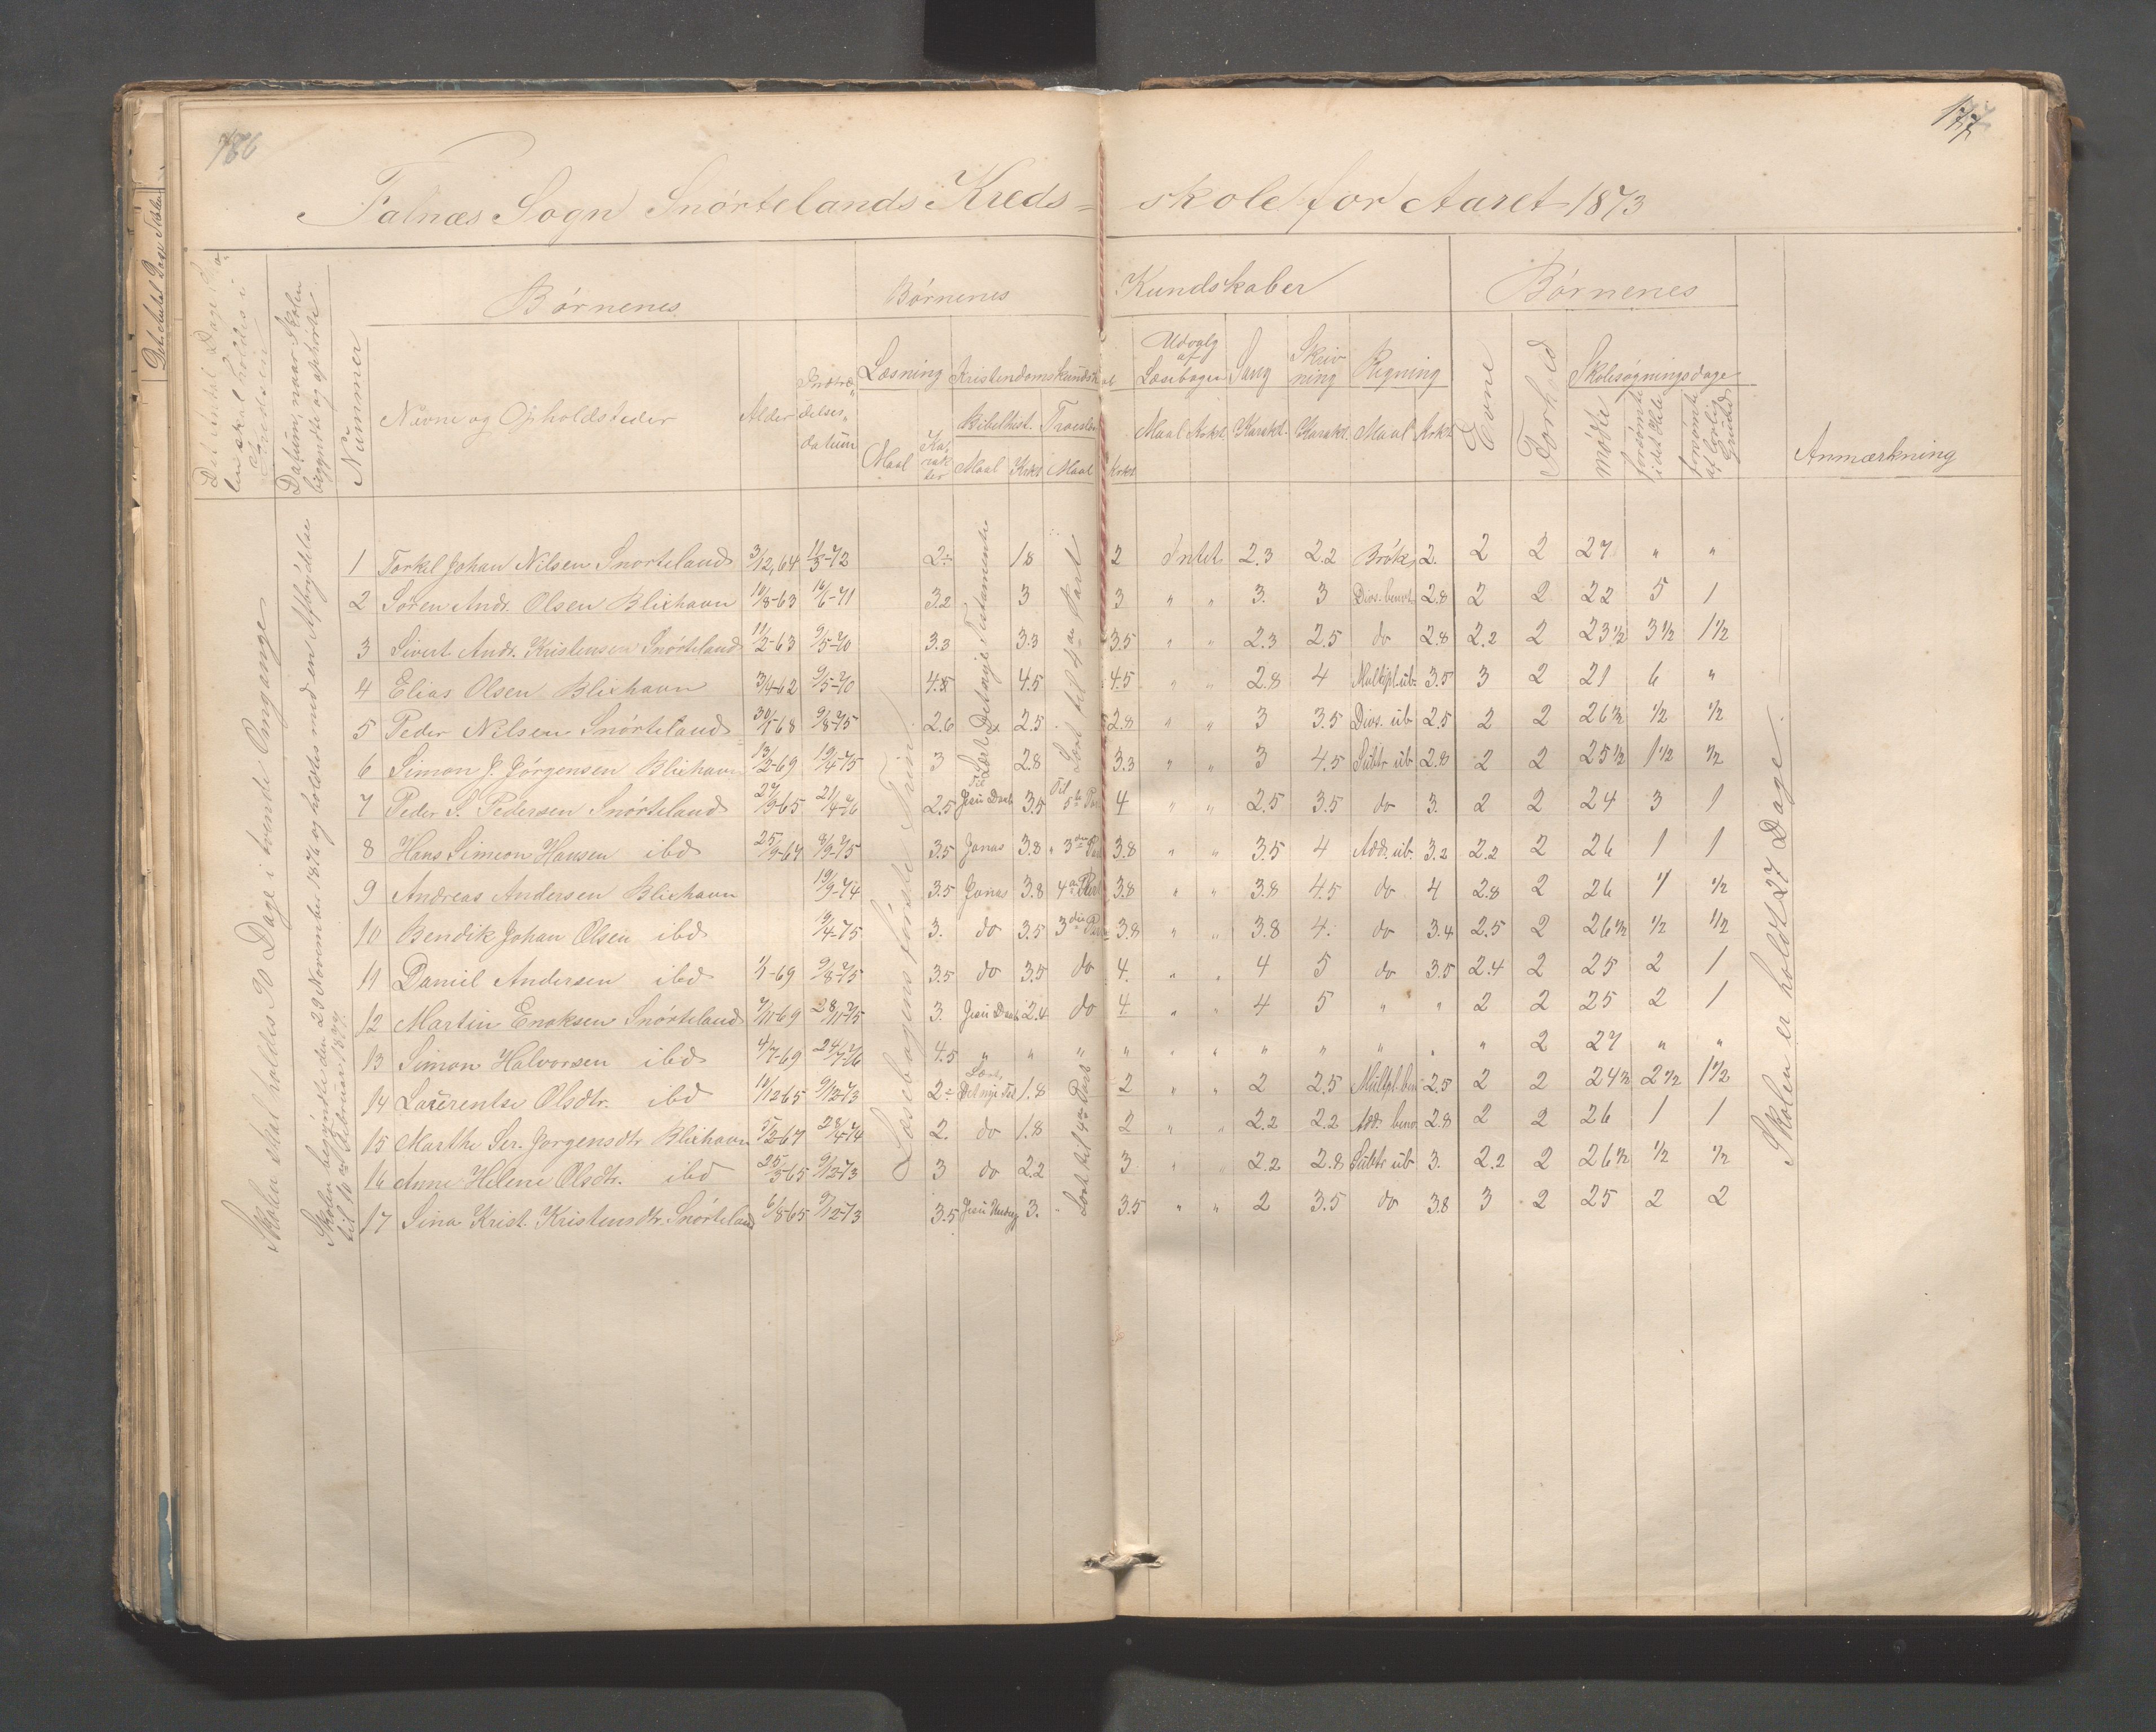 Falnæs Sogn Snørtelands Kreds-skole for Aaret 1873
Det Antal Dage Skolen skal holdes i Kredsen
Datum, naar Skolen begyndte og ophørte
Nummer
Børnenes
Børnenes Kundskaber
Børnenes
Nævne og Opholdssteder Alder Indtrædelses-datum Læsning Kristendomskundskab Udvalg af Læsebogen Sang Skrivning Regning Evne Forhold Skolesøgningsdage
Maal Karakter Bibelhist. Troeslære Maal Krkt. Maal Krkt. Maal Krkt. Karakt. Karakt. Maal Krkt. mødte forsømte i det Hele forsømte af lovlig Grund Anmærkning
Skolen skal holdes 90 Dage i tvende Omgange
Skolen begyndte den 29 November 1876 og holdtes med en Afbrydelse til 10 Februar 1877.
Læsebogens første Trin
Læst Det nye Testamente
Lært til 4de Part
1 Torkel Johan Nilsen Snørteland 3/12,64 11/3-72 2- 1.8 2 Intet 2.3 2.2 Brøk 2. 2 2 27 " "
2 Søren Andr. Olsen Blixhavn 10/8-63 16/6-71 3.2 3 3 " " 3. 3 Divs. benvt. 2.8 2 2 22 5 1
3 Sivert Andr. Kristensen Snørteland 11/2-63 9/5-70 3.3 3.3 3.5 " " 2.3 2.5 do 2.8 2.2 2 23½ 3½ 1½
4 Elias Olsen Blixhavn 3/4-62 9/5-70 4.5 4.5 4.5 " " 2.8 4 Multipl. ub. 3.5 3 2 21 6 "
5 Peder Nilsen Snørteland 30/1-68 9/8-75 2.6 2.5 2.8 " " 3 3.5 Divs. ub 2.5 2 2 26½ ½ ½
6 Simon J. Jørgensen Blixhavn 13/2-69 19/4-75 3 2.8 3.3 " " 3 4.5 Subtr ub 2.8 2 2 25½ 1½ ½
7 Peder S. Pedersen Snørteland 27/9-65 21/4-76 2.5 Til Jesu Daab 3.5 Til 5te Part 4 " " 2.5 3.5 do 3. 2 2 24 3 1
8 Hans Simeon Hansen ibd 25/9-67 8/9-75 3.5 Jonas 3.8 3die Part 3.8 " " 3.5 4 Add. ub. 3.2 2.2 2 26 1 1
9 Andreas Andersen Blixhavn 19/9-74 3.5 Jonas 3.8 4de Part 3.8 " " 3.8 4.5 do 4 2.8 2 26 1 ½
10 Bendik Johan Olsen ibd 19/4-75 3. do 3.5 3die Part 3.8 " " 3.8 4. do 3.4 2.5 2 26½ ½ ½
11 Daniel Andersen ibd 1/1-69 9/8-75 3.5 do 3.5 do 4. " " 4 5 do 3.5 2.4 2 25 2 1
12 Martin Enoksen Snørteland 7/11-69 28/11-75 3. Jesu Daab 2.4 do 4 " " 4 5 " " 2 2 25 2 1
13 Simon Halvorsen ibd 4/7-69 24/7-76 4.5 " " " " " " " " " " " 2 27 " "
14 Laurentse Olsdtr. ibd 10/12-65 9/12-73 2- Læst Det nye Test 1.8 2 " " 2 2.5 Multpl. ben 2.5 2 2 24½ 2½ 1½
15 Marthe Ser. Jørgensdtr Blixhavn 5/2-67 28/4-74 2. do 1.8 2 " " 2.2 2.2 Add. benv. 2.8 2 2 26 1 1
16 Anne Helene Olsdtr. ibd 25/5-65 9/12-73 3 do 2.2 3 " " 2.2 2.8 Subtr ub 3. 2.2 2 26½ ½ ½
17 Sina Krist. Kristensdtr Snørteland 6/8-65 9/12-73 3.5 3. 3.5 " " 2 3.5 do 3.8 3 2 25 2 2
Lært til 4de Part
Skolen er holdt 27 Dage